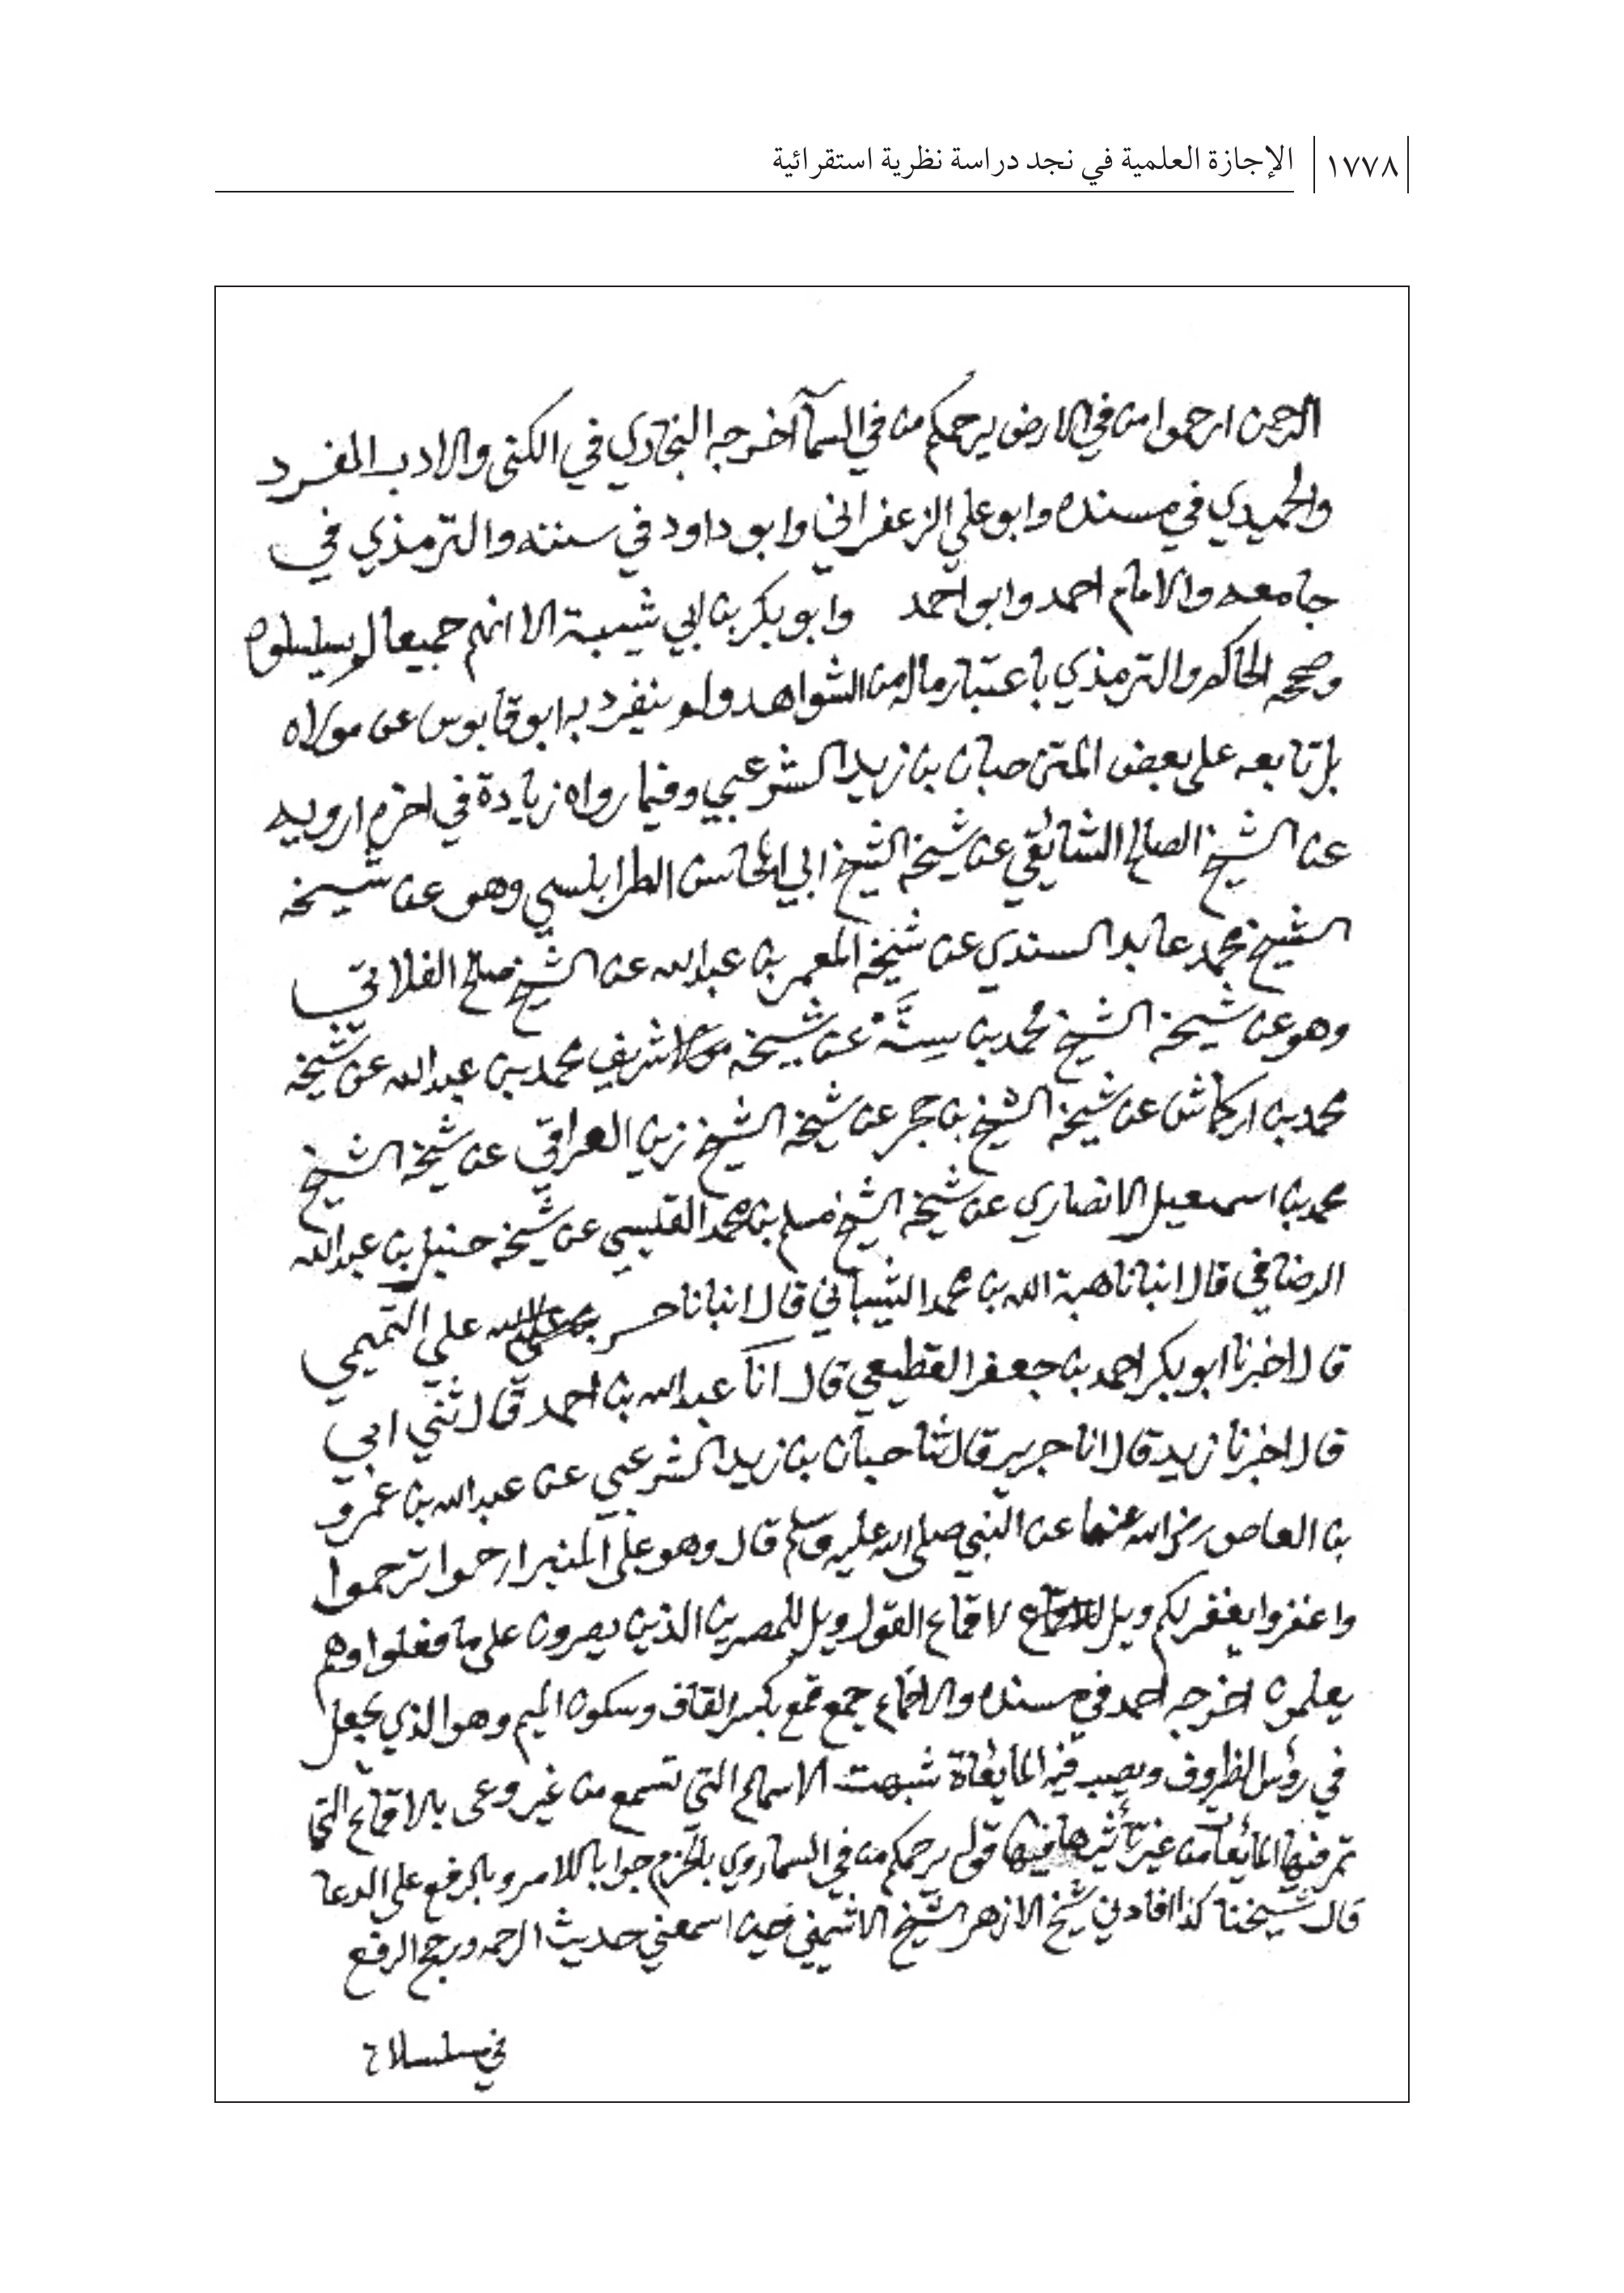 ١٧٧٨
الإجازة العلمية في نجد دراسة نظرية استقرائية
الرحمن ارحموا من في الارض يرحمكم من في السمآ أخرجه البخاري في الكنى والادب المفرد
والحميدي في مسنده وابو علي الزعفراني وابو داود في سننه والترمذي في
جامعه والامام احمد وابو احمد وابو بكر بن ابي شيبة الا انهم جميعا لم يسلسلوه
وصححه الحاكم والترمذي باعتبار ماله من الشواهد ولم ينفرد به ابو قابوس عن مولاه
بل تابعه على بعض المتن حبان بن زيد الشرعبي وفيما رواه زيادة في اخره ارويه
عن الشيخ الصالح عن شيخه الشيخ ابي المحاسن الطرابلسي وهو عن شيخه
الشيخ محمد عابد السندي عن شيخه المعمر بن عبدالله عن الشيخ صالح الفلاني
وهو عن شيخه الشيخ محمد بن سِنَّه عن شيخه مولا شريف محمد بن عبدالله عن شيخه
محمد بن اركماش عن شيخه الشيخ بن حجر عن شيخه الشيخ زين العراقي عن شيخه الشيخ
محمد بن اسمعيل الانصاري عن شيخه الشيخ مسلم بن محمد القيسي عن شيخه حنبل بن عبدالله
الرضافي قال انبانا هبة الله بن محمد الشيباني قال انبانا حسن بن علي التميمي
قال اخبرنا ابو بكر احمد بن جعفر القطيعي قال انآ عبدالله بن احمد قال ثني ابي
قال اخبرنا زيد قال انا جرير قال ثنا حبان بن زيد الشرعبي عن عبدالله بن عمرو
بن العاص رضي الله عنهما عن النبي صلى الله عليه وسلم قال وهو على المنبر ارحموا ترحموا
واغفروا يغفر لكم ويل لاقماع القول ويل للمصرين الذين يصرون على ما فعلوا وهم
يعلمون اخرجه احمد في مسنده والاقماع جمع قمع بكسر القاف وسكون الميم وهو الذي يجعل
في رؤس الظروف ويصب فيه المايعات شبهت الاسماع التي تسمع من غير وعى بالاقماع التي
تمر فيها المايعات من غير تأثيرها فيها قوله يرحمكم من في السما روي بالجزم جوابا للامر وبالرفع على الدعا
قال شيخنا كذا افادني شيخ الازهر الشيخ الاشمني حين اسمعني حديث الرحمه ورجح الرفع
في مسلسلات